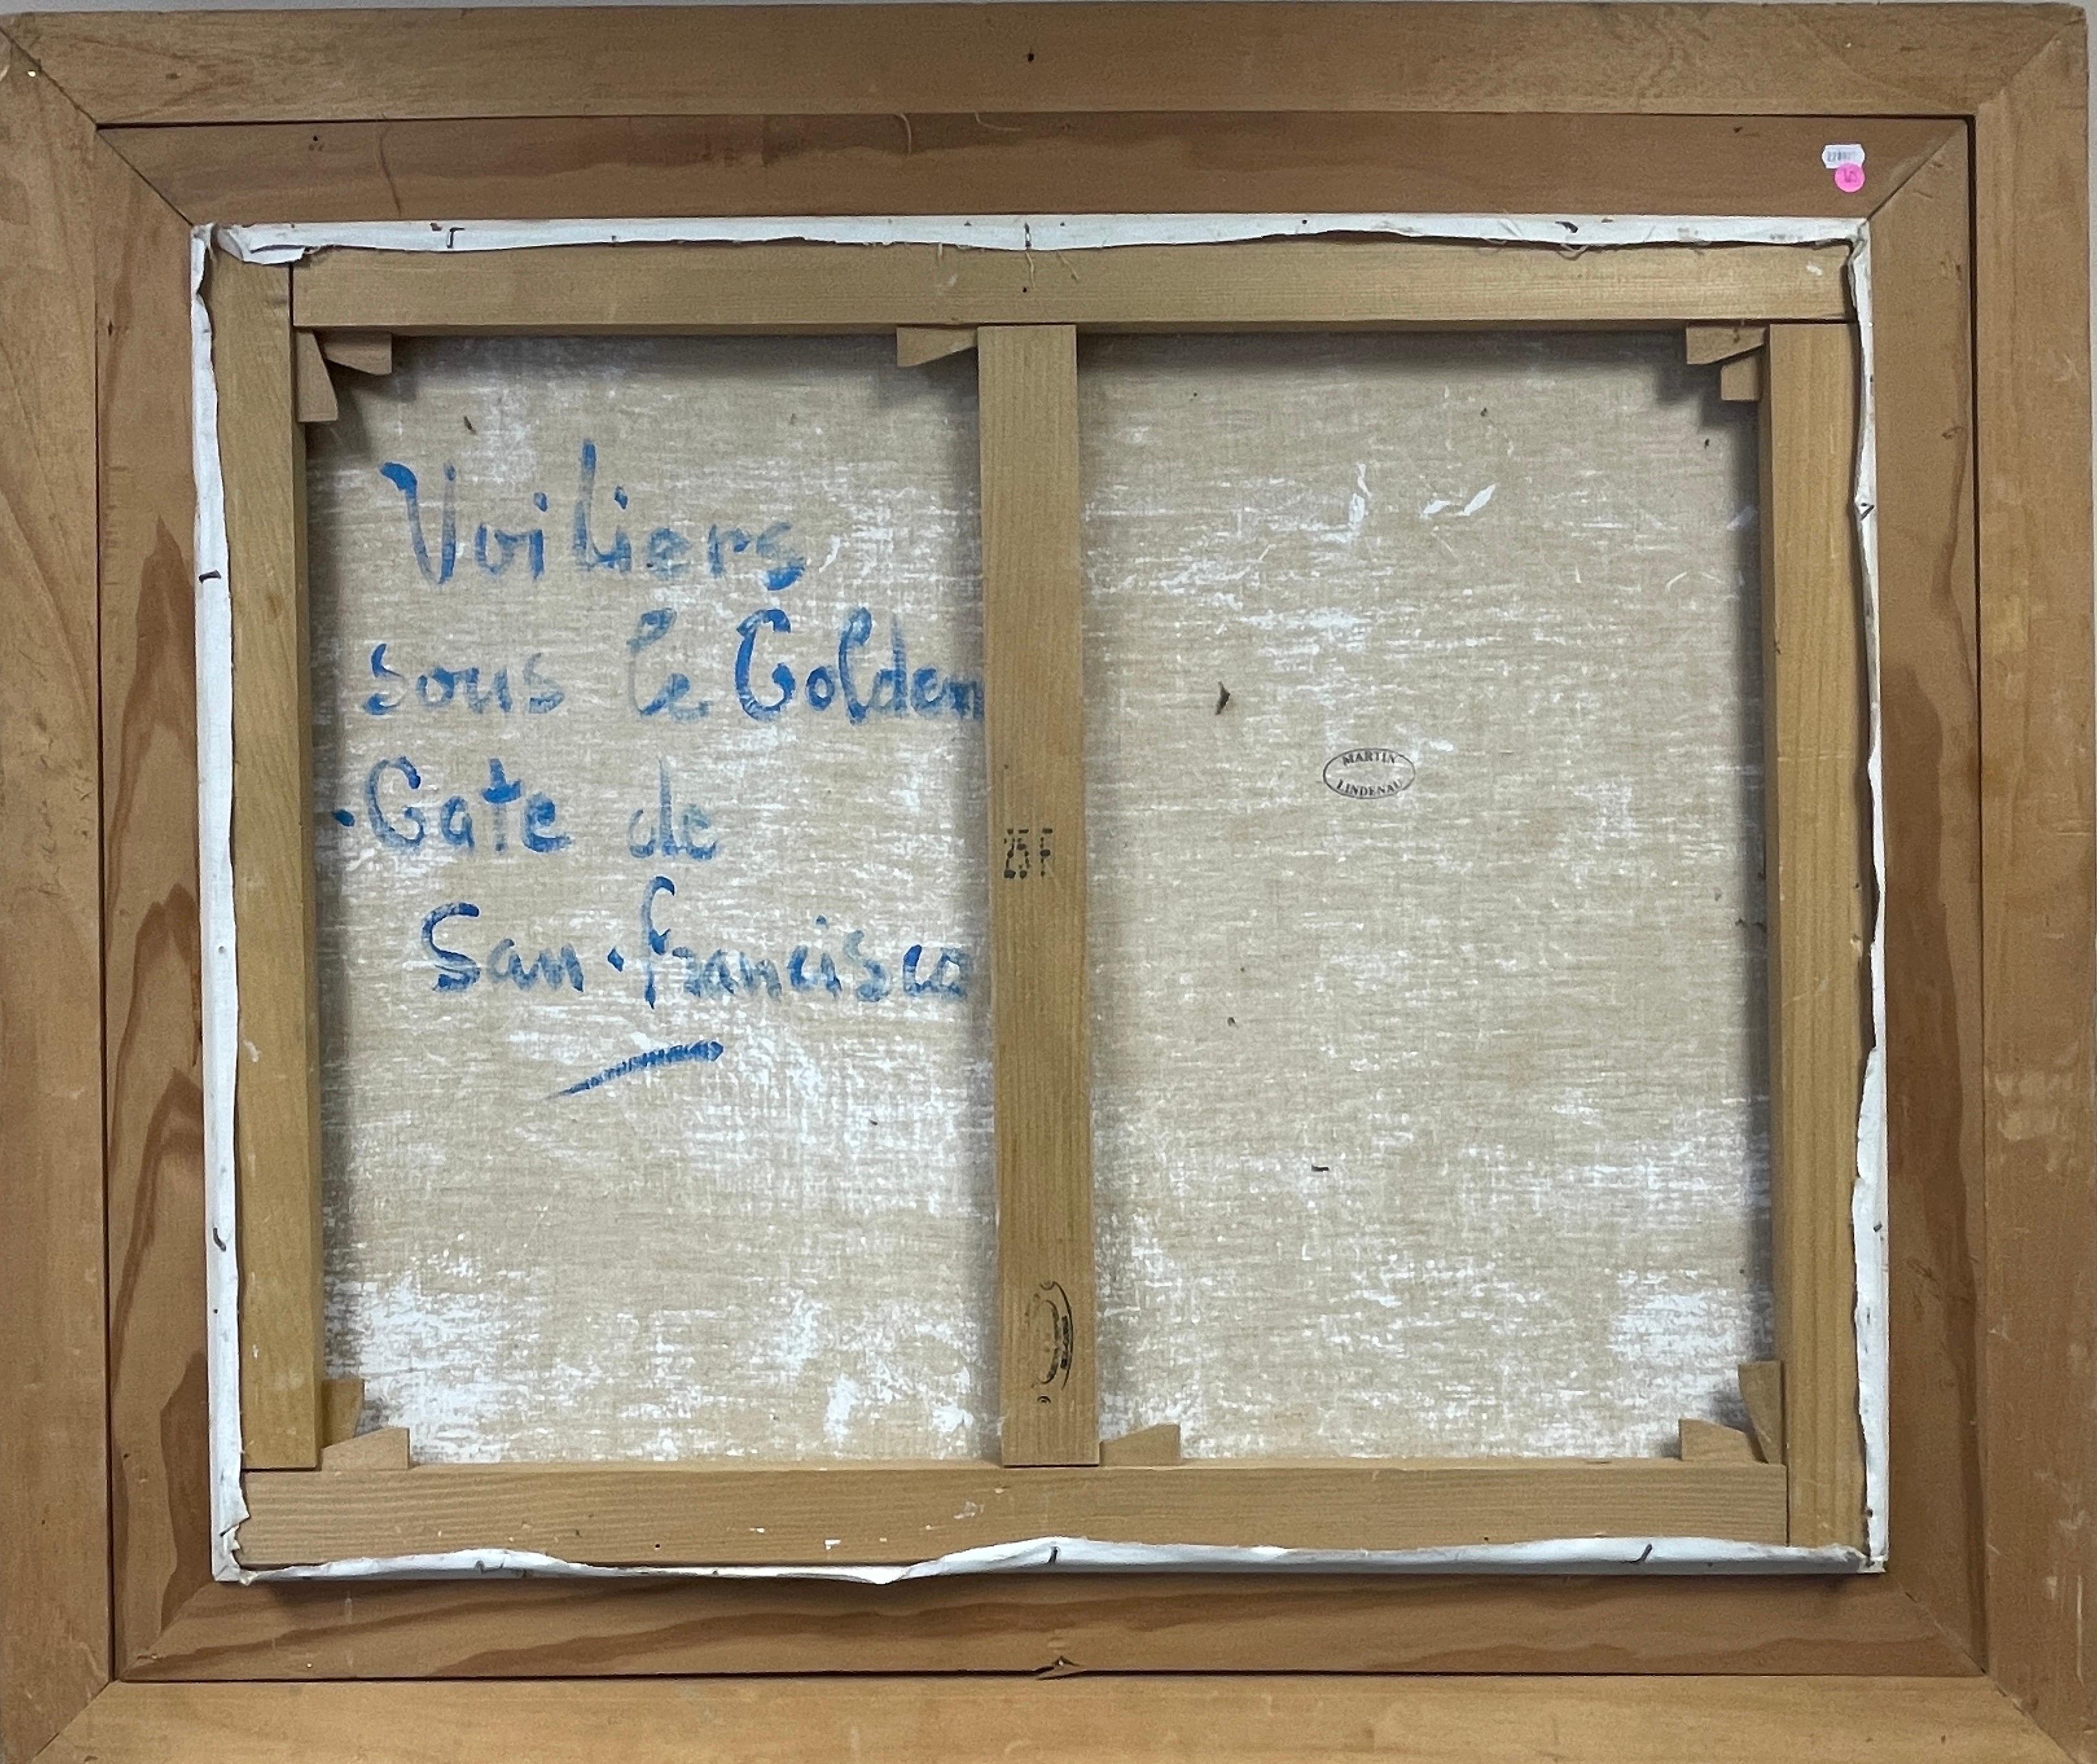 Voiliers
sous le Golden
Gate de
San-Francisco
MARTIN
LINDENAU
25 F